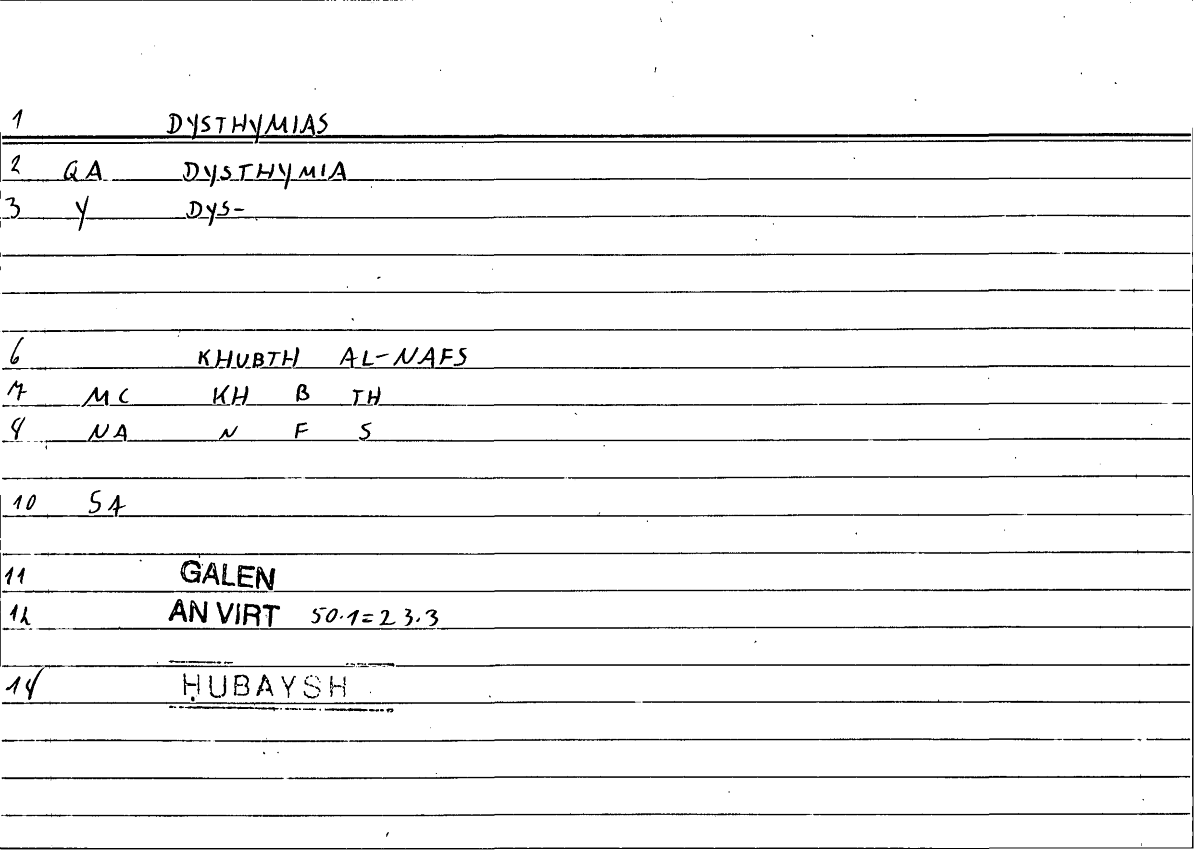 1 DYSTHYMIAS
2 QA DYSTHYMIA
3 Y DYS-
6 KHUBTH AL-NAFS
7 MC KH B TH
8 NA N F S
10 SA
11 GALEN
12 AN VIRT 50.1=23.3
14 ḤUBAYSH